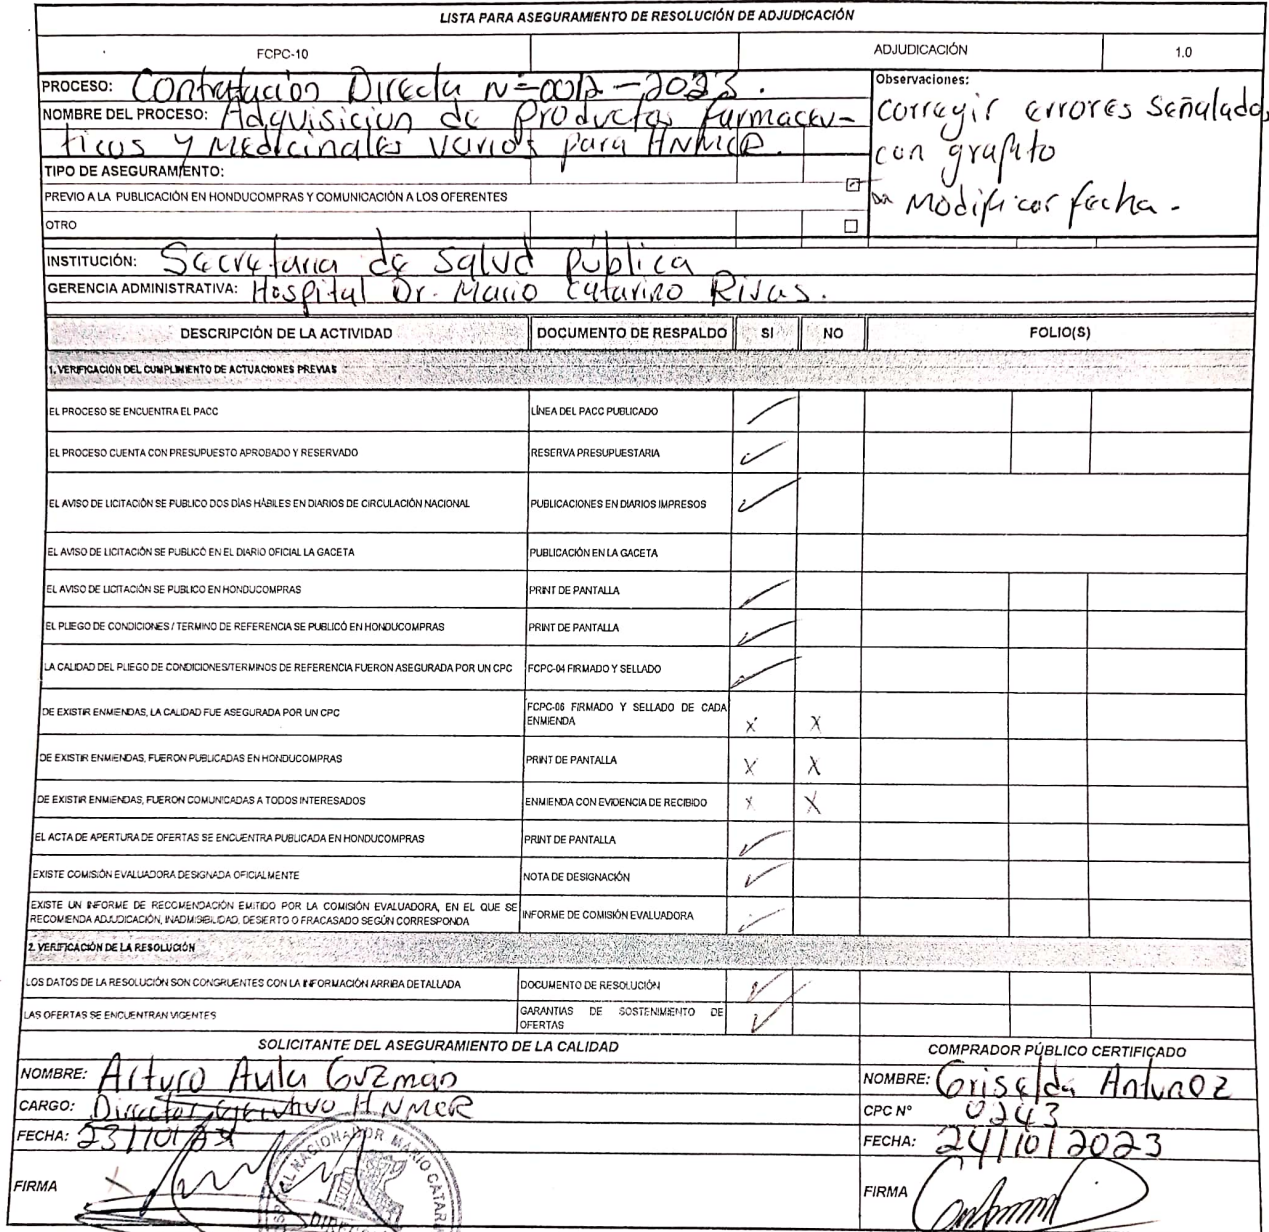 LISTA PARA ASEGURAMIENTO DE RESOLUCIÓN DE ADJUDICACIÓN
FCPC-10 ADJUDICACIÓN 1.0
PROCESO: Contratación Directa Nº-0012-2023.
NOMBRE DEL PROCESO: Adquisicion de Productos farmaceu-
ticos y Medicinales varios para HNMCR.
TIPO DE ASEGURAMIENTO:
PREVIO A LA PUBLICACIÓN EN HONDUCOMPRAS Y COMUNICACIÓN A LOS OFERENTES
OTRO
Observaciones:
corregir errores señalados
con grafito
Modificar fecha.
INSTITUCIÓN: Secretaria de Salud Pública
GERENCIA ADMINISTRATIVA: Hospital Dr. Mario Catarino Rivas.
DESCRIPCIÓN DE LA ACTIVIDAD DOCUMENTO DE RESPALDO SI NO FOLIO(S)
1. VERIFICACIÓN DEL CUMPLIMIENTO DE ACTUACIONES PREVIAS
EL PROCESO SE ENCUENTRA EL PACC LÍNEA DEL PACC PUBLICADO ✓
EL PROCESO CUENTA CON PRESUPUESTO APROBADO Y RESERVADO RESERVA PRESUPUESTARIA ✓
EL AVISO DE LICITACIÓN SE PUBLICO DOS DÍAS HÁBILES EN DIARIOS DE CIRCULACIÓN NACIONAL PUBLICACIONES EN DIARIOS IMPRESOS ✓
EL AVISO DE LICITACIÓN SE PUBLICÓ EN EL DIARIO OFICIAL LA GACETA PUBLICACIÓN EN LA GACETA
EL AVISO DE LICITACIÓN SE PUBLICO EN HONDUCOMPRAS PRINT DE PANTALLA ✓
EL PLIEGO DE CONDICIONES / TERMINO DE REFERENCIA SE PUBLICÓ EN HONDUCOMPRAS PRINT DE PANTALLA ✓
LA CALIDAD DEL PLIEGO DE CONDICIONES/TERMINOS DE REFERENCIA FUERON ASEGURADA POR UN CPC FCPC-04 FIRMADO Y SELLADO ✓
DE EXISTIR ENMIENDAS, LA CALIDAD FUE ASEGURADA POR UN CPC FCPC-06 FIRMADO Y SELLADO DE CADA ENMIENDA X X
DE EXISTIR ENMIENDAS, FUERON PUBLICADAS EN HONDUCOMPRAS PRINT DE PANTALLA X X
DE EXISTIR ENMIENDAS, FUERON COMUNICADAS A TODOS INTERESADOS ENMIENDA CON EVIDENCIA DE RECIBIDO X X
EL ACTA DE APERTURA DE OFERTAS SE ENCUENTRA PUBLICADA EN HONDUCOMPRAS PRINT DE PANTALLA ✓
EXISTE COMISIÓN EVALUADORA DESIGNADA OFICIALMENTE NOTA DE DESIGNACIÓN ✓
EXISTE UN INFORME DE RECOMENDACIÓN EMITIDO POR LA COMISIÓN EVALUADORA, EN EL QUE SE
RECOMIENDA ADJUDICACIÓN, INADMISIBILIDAD, DESIERTO O FRACASADO SEGÚN CORRESPONDA INFORME DE COMISIÓN EVALUADORA ✓
2. VERIFICACIÓN DE LA RESOLUCIÓN
LOS DATOS DE LA RESOLUCIÓN SON CONGRUENTES CON LA INFORMACIÓN ARRIBA DETALLADA DOCUMENTO DE RESOLUCIÓN ✓
LAS OFERTAS SE ENCUENTRAN VIGENTES GARANTIAS DE SOSTENIMIENTO DE OFERTAS ✓
SOLICITANTE DEL ASEGURAMIENTO DE LA CALIDAD
NOMBRE: Arturo Avila Guzman
CARGO: Director Ejecutivo HNMCR
FECHA: 23/10/
FIRMA
COMPRADOR PÚBLICO CERTIFICADO
NOMBRE: Griselda Antunez
CPC Nº 0243
FECHA: 24/10/2023
FIRMA